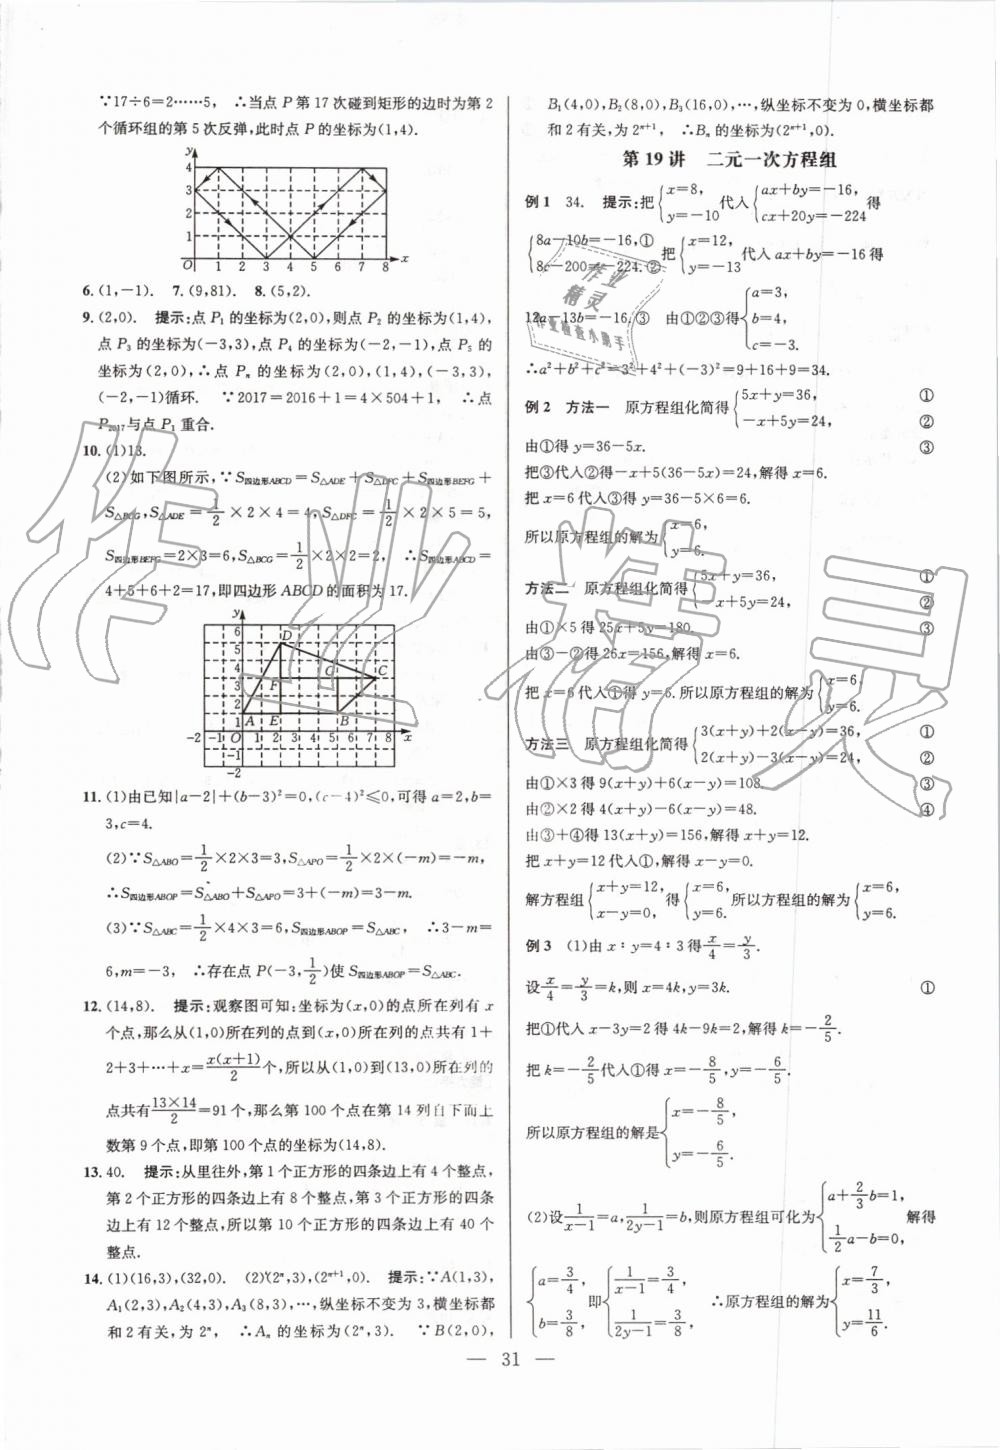 ∵17÷6=2……5，∴当点 P 第 17 次碰到矩形的边时为第 2
个循环组的第 5 次反弹，此时点 P 的坐标为(1,4).
y
4
3
2
1
O 1 2 3 4 5 6 7 8 x
6. (1,-1). 7. (9,81). 8. (5,2).
9. (2,0). 提示：点 P₁ 的坐标为(2,0)，则点 P₂ 的坐标为(1,4)，
点 P₃ 的坐标为(-3,3)，点 P₄ 的坐标为(-2,-1)，点 P₅ 的
坐标为(2,0)，∴点 Pₙ 的坐标为(2,0),(1,4),(-3,3),
(-2,-1)循环. ∵2017=2016+1=4×504+1，∴点
P₂₀₁₇与点 P₁ 重合.
10. (1)13.
(2)如下图所示，∵S四边形ABCD=S△ADE+S△DFC+S四边形BEFG+
S△BCG，S△ADE=1/2×2×4=4，S△DFC=1/2×2×5=5，
S四边形BEFG=2×3=6，S△BCG=1/2×2×2=2，∴S四边形ABCD=
4+5+6+2=17，即四边形 ABCD 的面积为 17.
y
6
5
4
3
2
1
D
F G C
A E B
-2 -1 O 1 2 3 4 5 6 7 8 x
-1
-2
11. (1)由已知|a-2|+(b-3)²=0,(c-4)²≤0,可得 a=2,b=
3,c=4.
(2)∵S△ABO=1/2×2×3=3,S△APO=1/2×2×(-m)=-m,
∴S四边形ABOP=S△ABO+S△APO=3+(-m)=3-m.
(3)∵S△ABC=1/2×4×3=6,S四边形ABOP=S△ABC，∴3-m=
6,m=-3，∴存在点 P(-3,1/2)使 S四边形ABOP=S△ABC.
12. (14,8). 提示：观察图可知：坐标为(x,0)的点所在列有 x
个点，那么从(1,0)所在列的点到(x,0)所在列的点共有 1+
2+3+…+x=x(x+1)/2个，所以从(1,0)到(13,0)所在列的
点共有13×14/2=91 个，那么第 100 个点在第 14 列自下而上
数第 9 个点，即第 100 个点的坐标为(14,8).
13. 40. 提示：从里往外，第 1 个正方形的四条边上有 4 个整点，
第 2 个正方形的四条边上有 8 个整点，第 3 个正方形的四条
边上有 12 个整点，所以第 10 个正方形的四条边上有 40 个
整点.
14. (1)(16,3),(32,0). (2)(2ⁿ,3),(2ⁿ⁺¹,0). 提示：∵A(1,3),
A₁(2,3),A₂(4,3),A₃(8,3),…,纵坐标不变为 3,横坐标都
和 2 有关,为 2ⁿ，∴Aₙ 的坐标为(2ⁿ,3). ∵B(2,0),
B₁(4,0),B₂(8,0),B₃(16,0),…,纵坐标不变为 0,横坐标都
和 2 有关,为 2ⁿ⁺¹，∴Bₙ 的坐标为(2ⁿ⁺¹,0).
第 19 讲 二元一次方程组
例1 34. 提示：把{x=8, y=-10 代入{ax+by=-16, cx+20y=-224 得
{8a-10b=-16,① 8c-200=-224.② 把{x=12, y=-13 代入 ax+by=-16 得
12a-13b=-16,③ 由①②③得{a=3, b=4, c=-3.
∴a²+b²+c²=3²+4²+(-3)²=9+16+9=34.
例2 方法一 原方程组化简得{5x+y=36, ① -x+5y=24, ②
由①得 y=36-5x. ③
把③代入②得-x+5(36-5x)=24,解得 x=6.
把 x=6 代入③得 y=36-5×6=6.
所以原方程组的解为{x=6, y=6.
方法二 原方程组化简得{5x+y=36, ① -x+5y=24, ②
由①×5 得 25x+5y=180. ③
由③-②得 26x=156,解得 x=6.
把 x=6 代入①得 y=6.所以原方程组的解为{x=6, y=6.
方法三 原方程组化简得{3(x+y)+2(x-y)=36, ① 2(x+y)-3(x-y)=24, ②
由①×3 得 9(x+y)+6(x-y)=108. ③
由②×2 得 4(x+y)-6(x-y)=48. ④
由③+④得 13(x+y)=156,解得 x+y=12.
把 x+y=12 代入①,解得 x-y=0.
解方程组{x+y=12, x-y=0, 得{x=6, y=6. 所以方程组的解为{x=6, y=6.
例3 (1)由 x∶y=4∶3 得 x/4=y/3.
设 x/4=y/3=k,则 x=4k,y=3k. ①
把①代入 x-3y=2 得 4k-9k=2,解得 k=-2/5.
把 k=-2/5代入①得 x=-8/5,y=-6/5.
所以原方程组的解是{x=-8/5, y=-6/5.
(2)设 1/(x-1)=a,1/(2y-1)=b,则原方程组可化为{a+2/3b=1, 1/2a-b=0, 解得
{a=3/4, b=3/8, 即{1/(x-1)=3/4, 1/(2y-1)=3/8. ∴原方程组的解为{x=7/3, y=11/6.
— 31 —
作业精灵
作业
精灵
作业检查小助手